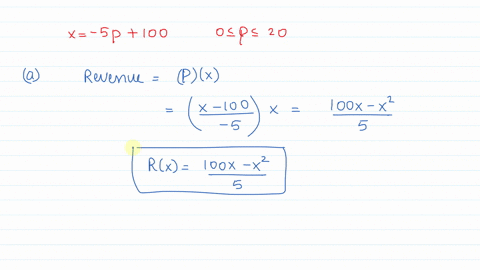 x = -5p + 100    0 ≤ p ≤ 20
(a) Revenue = (P)(x)
= ( (x - 100) / -5 ) x = (100x - x²) / 5
R(x) = (100x - x²) / 5